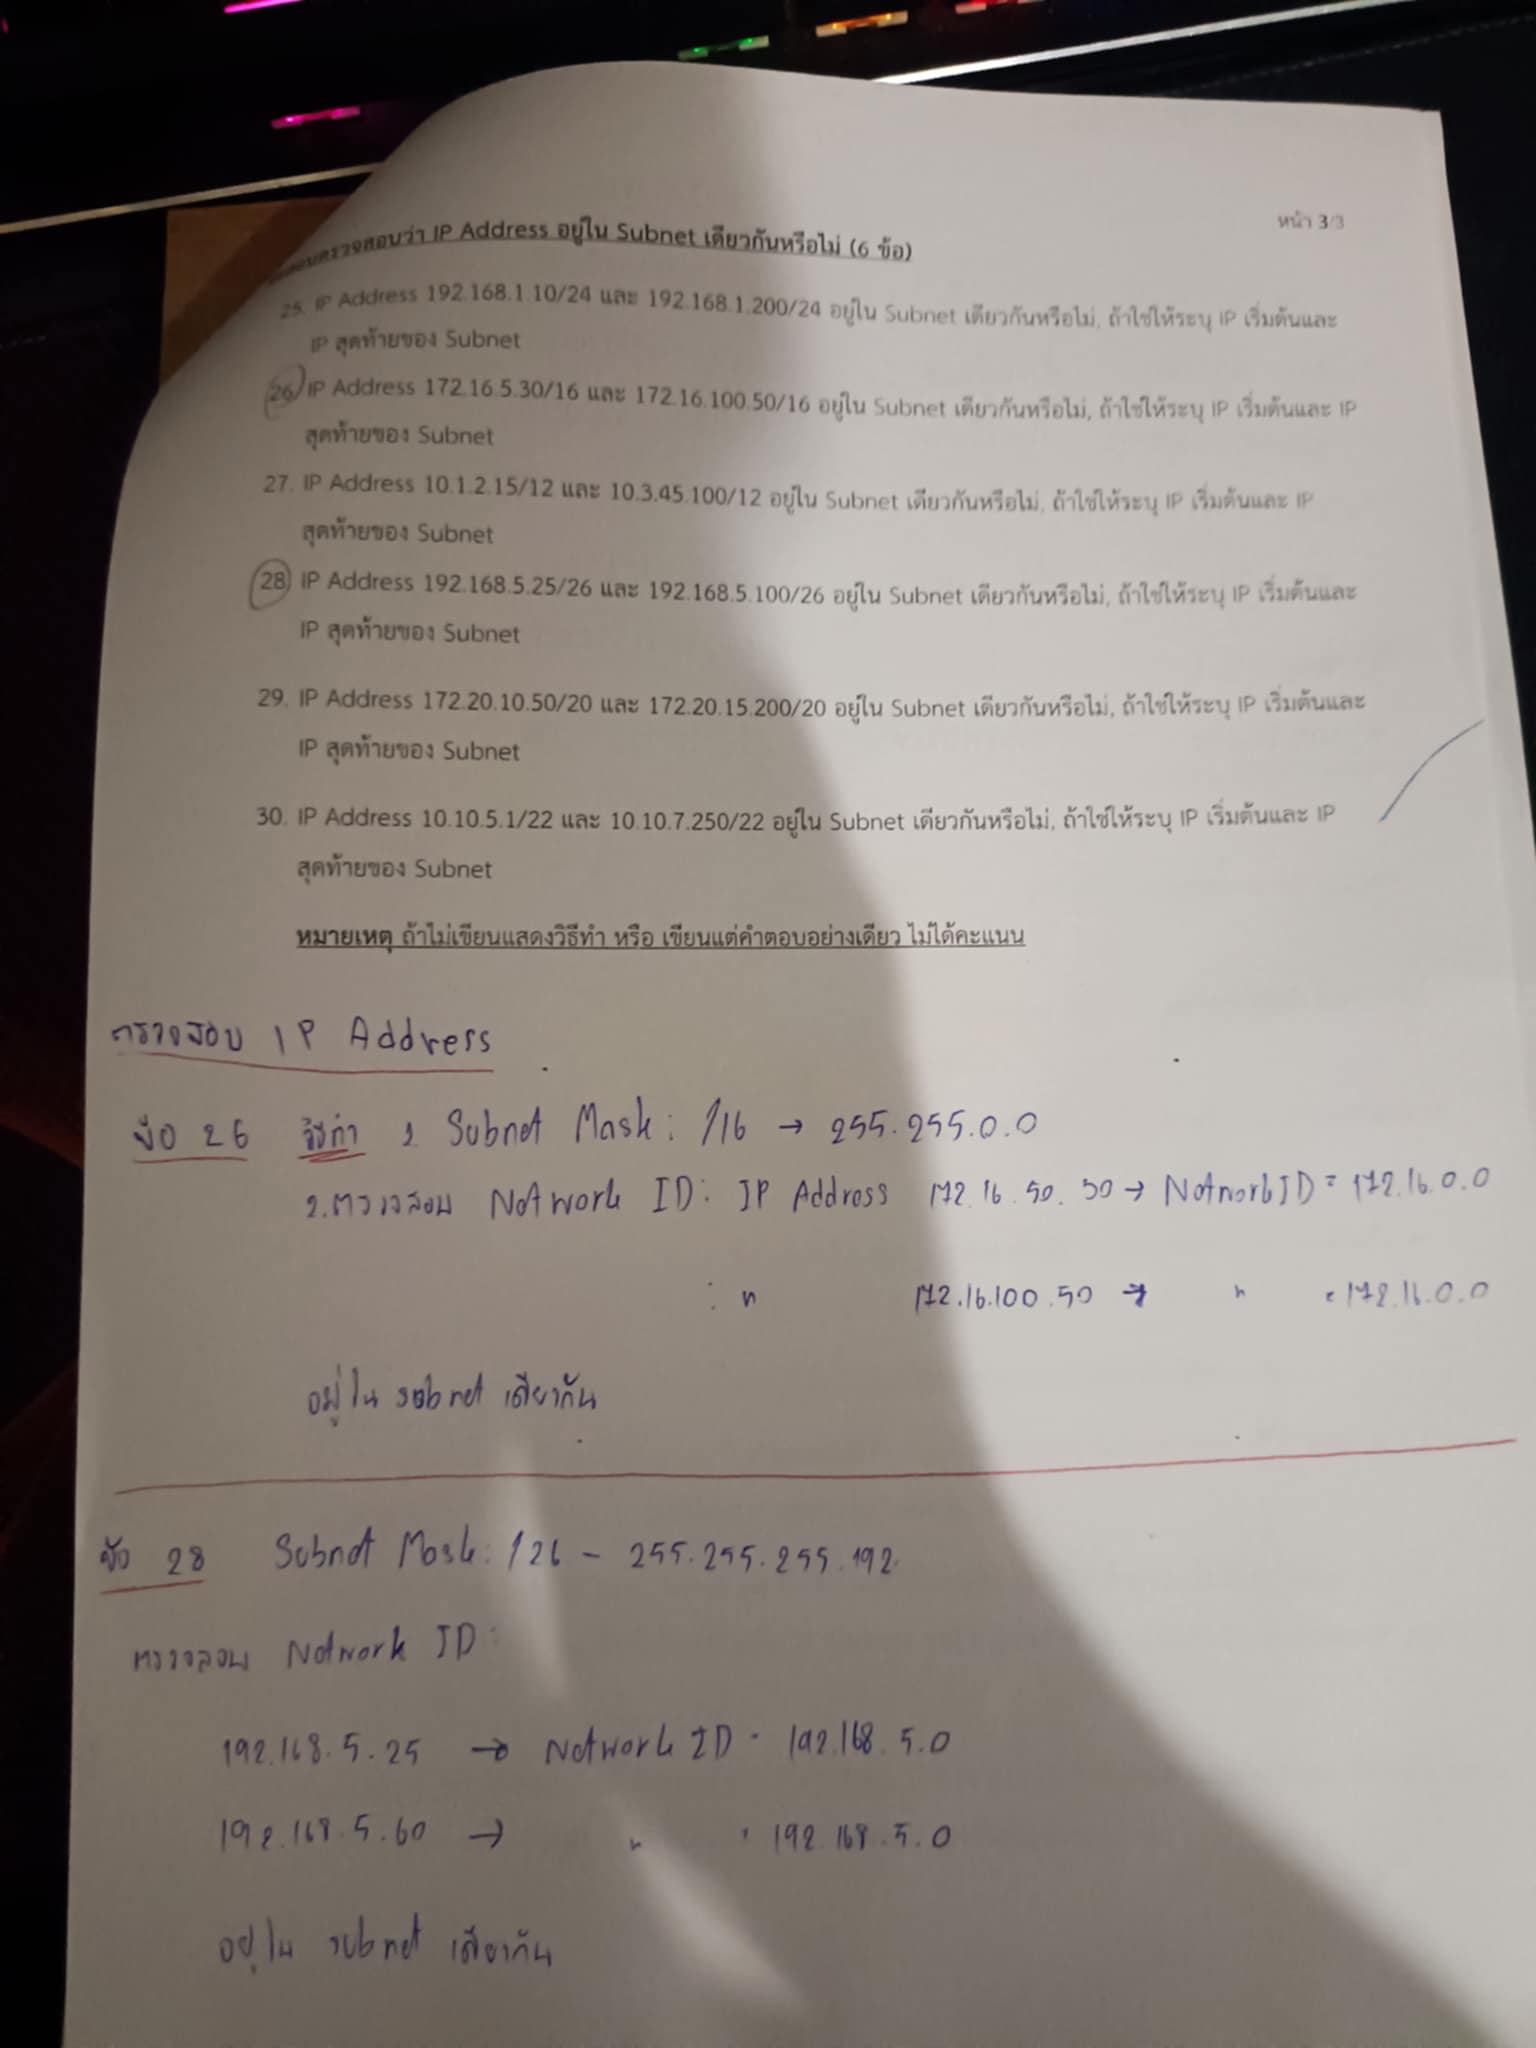 หน้า 3/3
ตรวจสอบว่า IP Address อยู่ใน Subnet เดียวกันหรือไม่ (6 ข้อ)
25. IP Address 192.168.1.10/24 และ 192.168.1.200/24 อยู่ใน Subnet เดียวกันหรือไม่, ถ้าใช่ให้ระบุ IP เริ่มต้นและ
IP สุดท้ายของ Subnet
26. IP Address 172.16.5.30/16 และ 172.16.100.50/16 อยู่ใน Subnet เดียวกันหรือไม่, ถ้าใช่ให้ระบุ IP เริ่มต้นและ IP
สุดท้ายของ Subnet
27. IP Address 10.1.2.15/12 และ 10.3.45.100/12 อยู่ใน Subnet เดียวกันหรือไม่, ถ้าใช่ให้ระบุ IP เริ่มต้นและ IP
สุดท้ายของ Subnet
28. IP Address 192.168.5.25/26 และ 192.168.5.100/26 อยู่ใน Subnet เดียวกันหรือไม่, ถ้าใช่ให้ระบุ IP เริ่มต้นและ
IP สุดท้ายของ Subnet
29. IP Address 172.20.10.50/20 และ 172.20.15.200/20 อยู่ใน Subnet เดียวกันหรือไม่, ถ้าใช่ให้ระบุ IP เริ่มต้นและ
IP สุดท้ายของ Subnet
30. IP Address 10.10.5.1/22 และ 10.10.7.250/22 อยู่ใน Subnet เดียวกันหรือไม่, ถ้าใช่ให้ระบุ IP เริ่มต้นและ IP
สุดท้ายของ Subnet
หมายเหตุ ถ้าไม่เขียนแสดงวิธีทำ หรือ เขียนแต่คำตอบอย่างเดียว ไม่ได้คะแนน
ตรวจสอบ IP Address
ข้อ 26 วิธีทำ 1. Subnet Mask: /16 → 255.255.0.0
2. ตรวจสอบ Network ID: IP Address 172.16.50.30 → Network ID = 172.16.0.0
: " 172.16.100.50 → " = 172.16.0.0
อยู่ใน subnet เดียวกัน
ข้อ 28 Subnet Mask: /26 - 255.255.255.192.
ตรวจสอบ Network ID:
192.168.5.25 → Network ID = 192.168.5.0
192.168.5.60 → " = 192.168.5.0
อยู่ใน subnet เดียวกัน